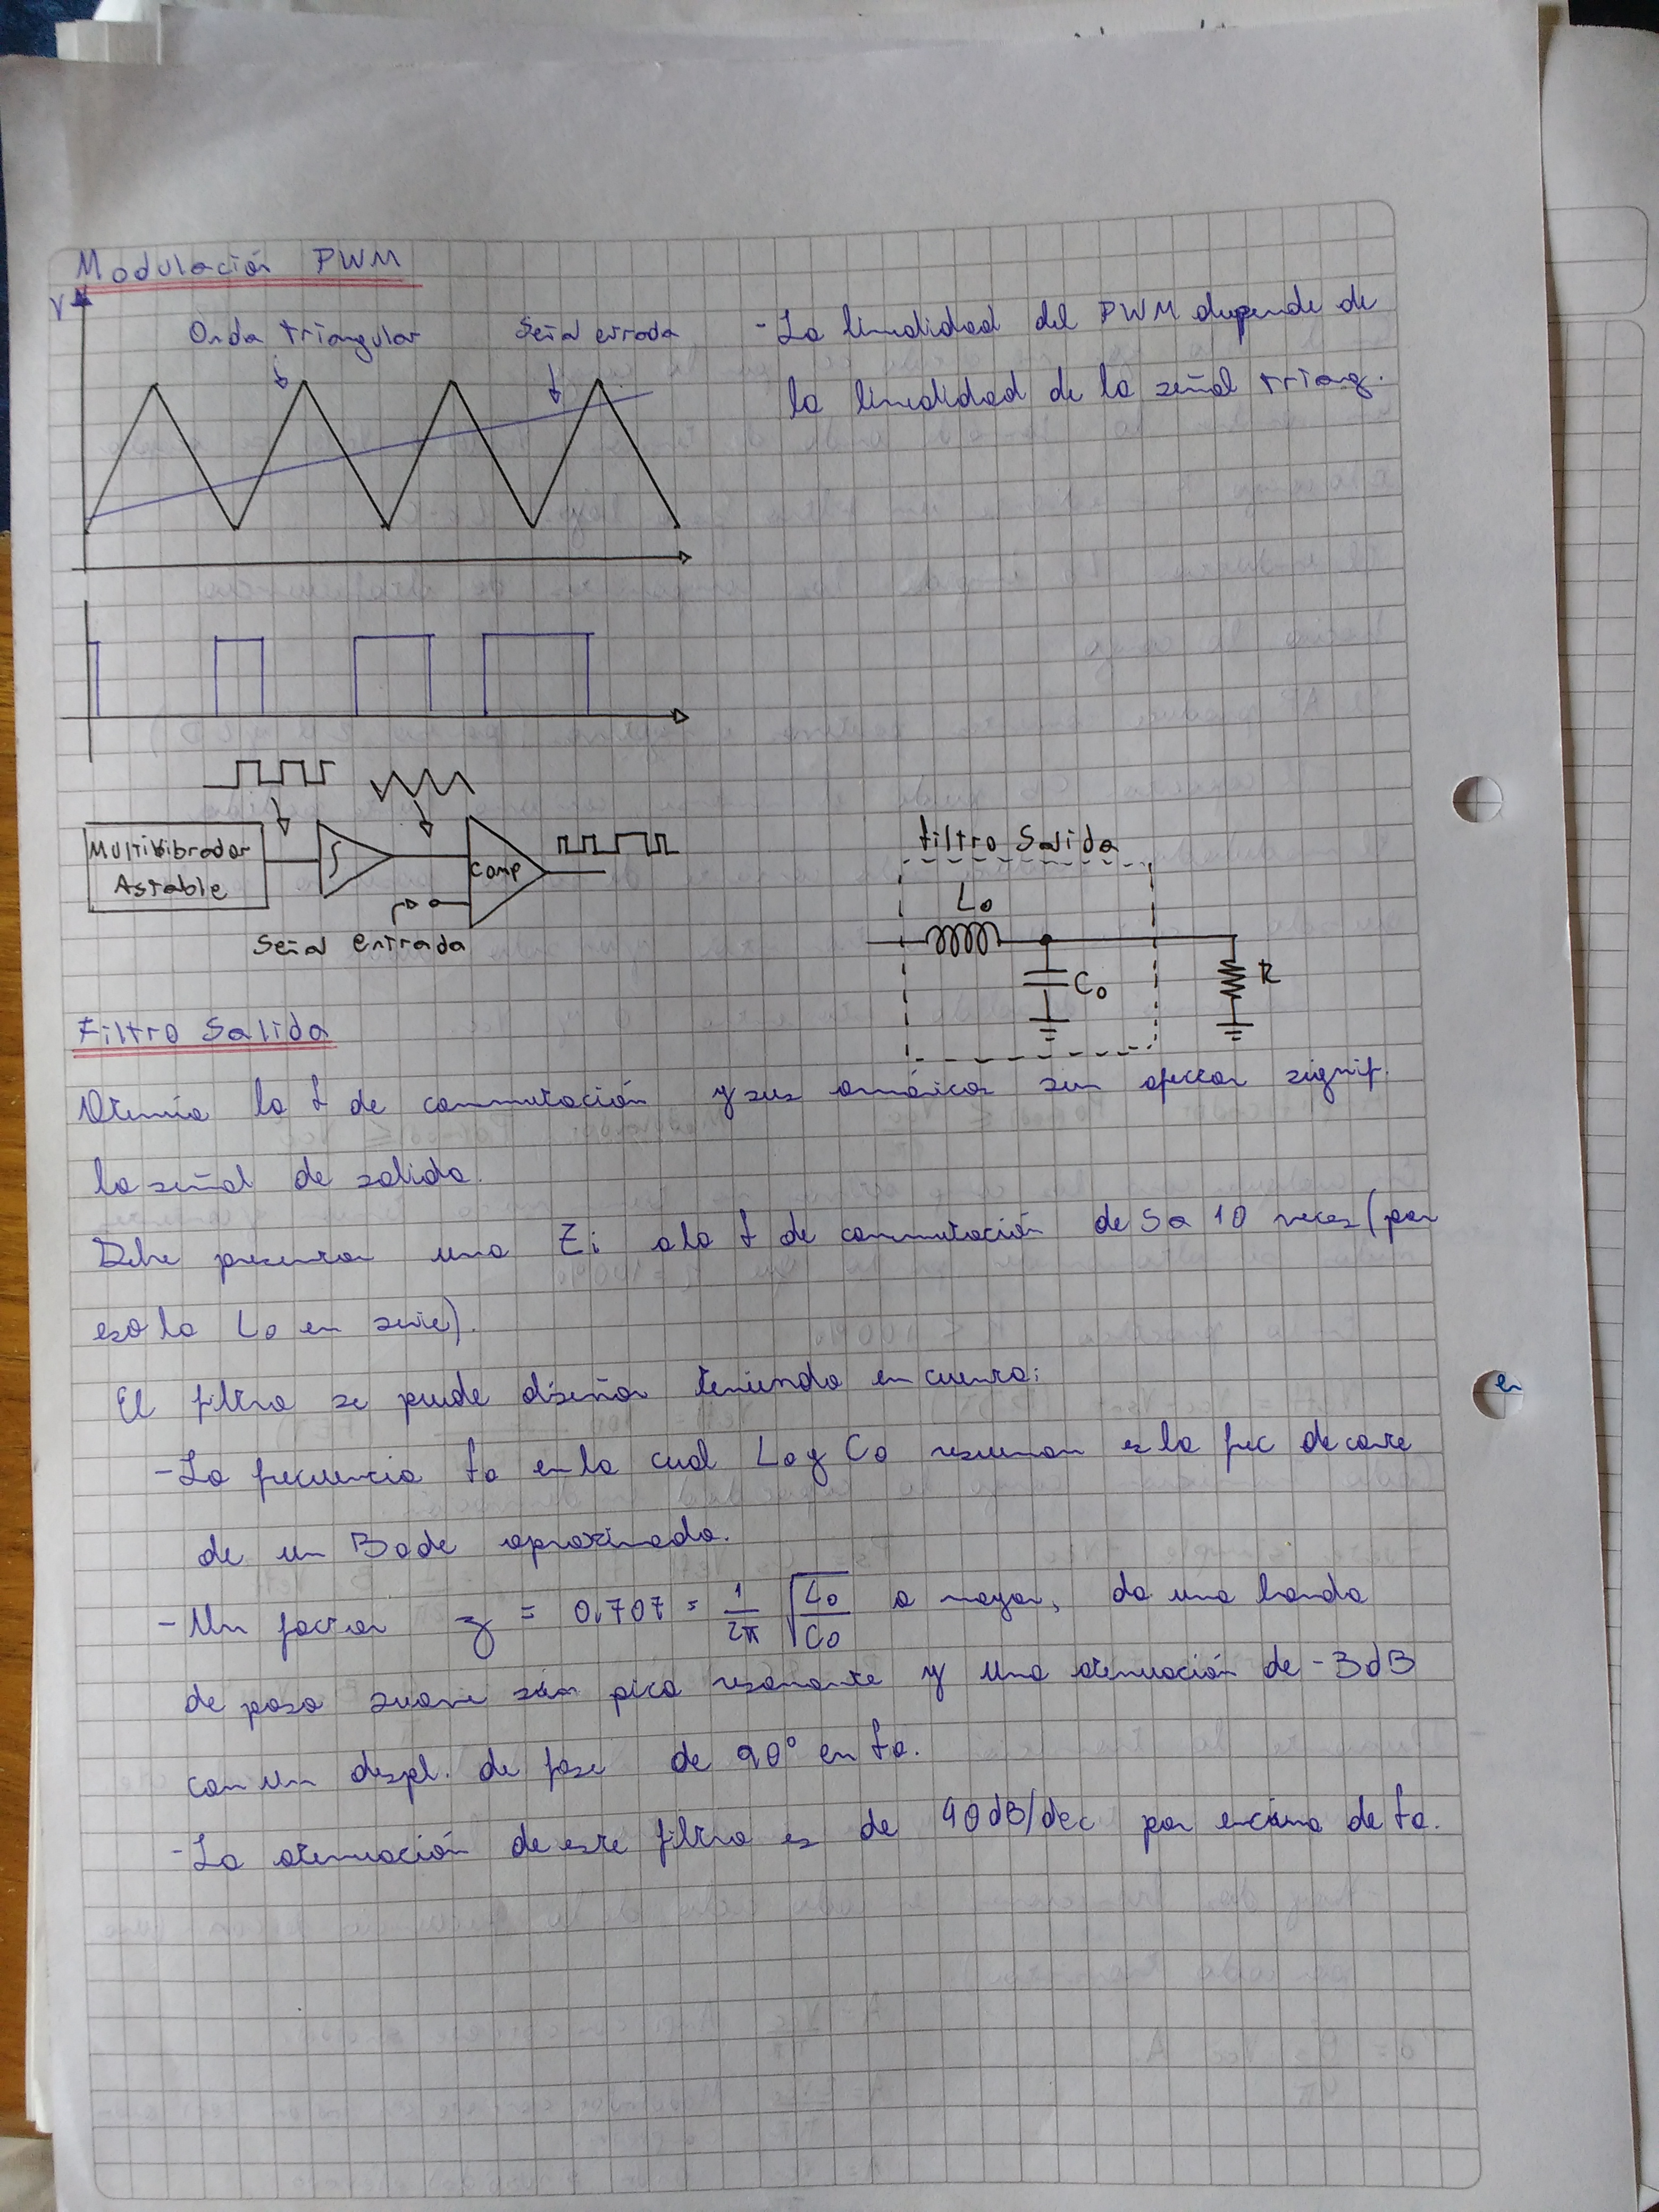 Modulación PWM
V
Onda triangular
Señal etrada
- La linealidad del PWM depende de
la linealidad de la señal triang.
Multivibrador
Astable
∫
Comp
Señal entrada
filtro Salida
Lo
Co
R
Filtro Salida
Atenúa la f de conmutación y sus armónicos sin afectar signif.
la señal de salida.
Debe presentar una Zi a la f de conmutación de 5 a 10 veces (por
eso la Lo en serie).
El filtro se puede diseñar teniendo en cuenta:
- La frecuencia fo en la cual Lo y Co resuenan es la frec de corte
de un Bode aproximado.
- Un factor z = 0,707 = 1/2π √(Lo/Co) o mayor, da una banda
de paso suave sin pico resonante y una atenuación de -3dB
con un despl. de fase de 90° en fo.
- La atenuación de este filtro es de 40dB/dec por encima de fo.
en